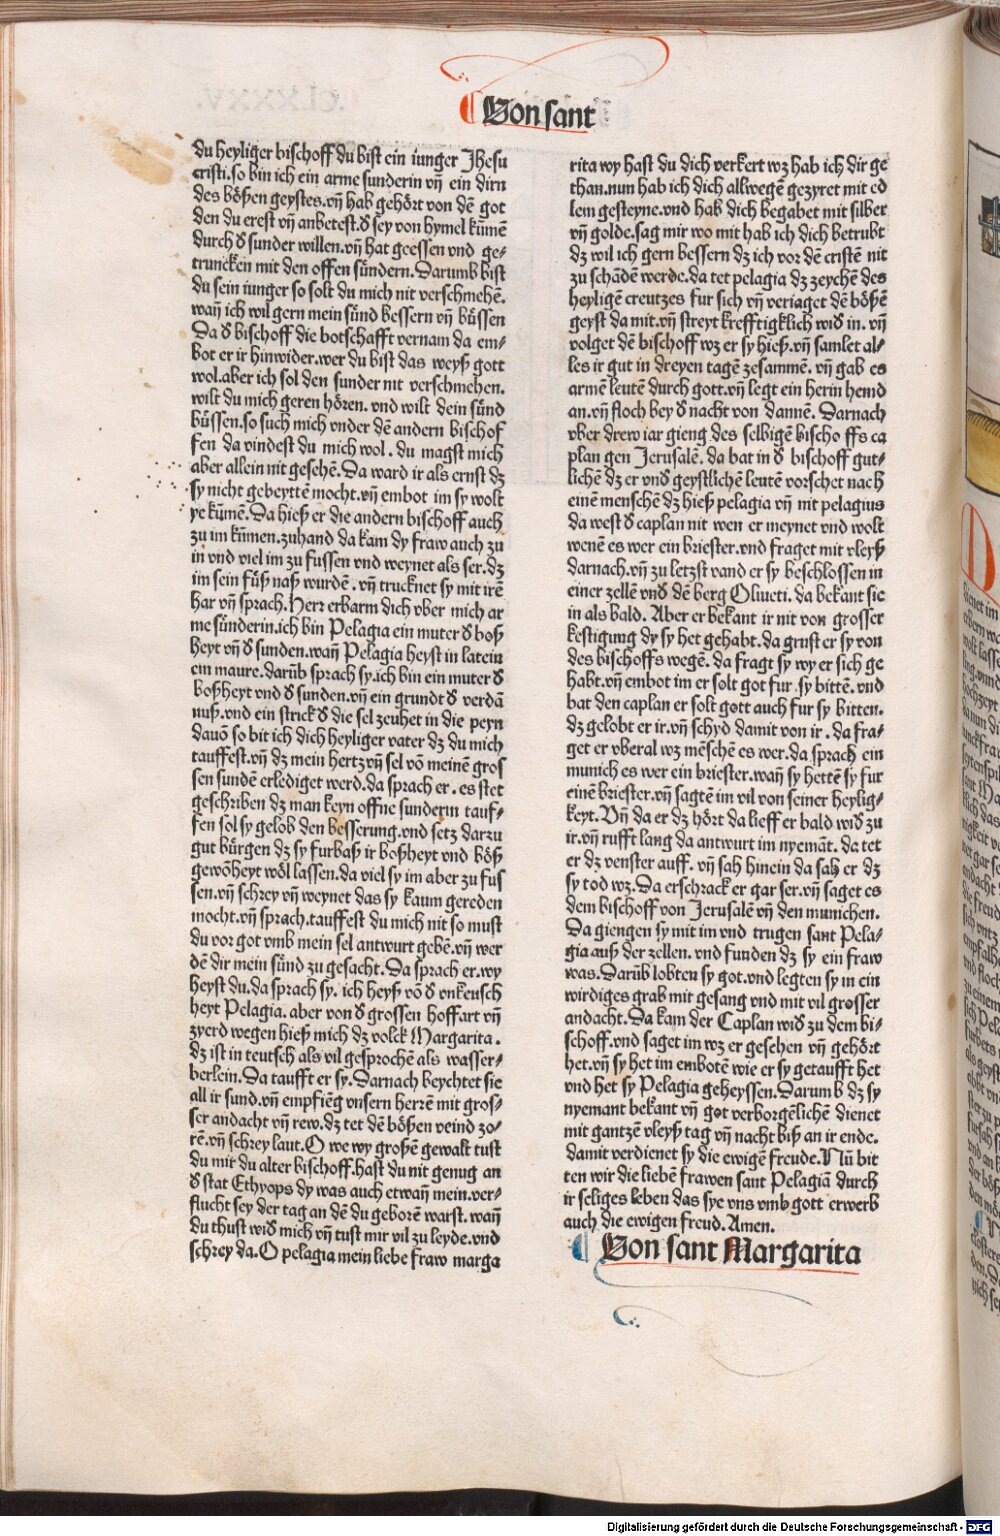 Von sant
du heyliger bischoff du bist ein iunger Jhesu
cristi.so bin ich ein arme sunderin vñ ein dirn
des bösen geystes.vñ hab gehört von dē got
den du erest vñ anbetest.d sey von hymel kūmē
durch d sunder willen.vñ hat geessen vnd ge-
truncken mit den offen sündern.Darumb bist
du sein iunger so solt du mich nit verschmehē.
wañ ich wil gern mein sünd bessern vñ büssen
Da d bischoff die botschafft vernam da em-
bot er ir hinwider.wer du bist das weyß gott
wol.aber ich sol den sunder nit verschmehen.
wilt du mich geren hören. vnd wilt dein sünd
büssen.so such mich vnder dē andern bischof
fen da vindest du mich wol. du magst mich
aber allein nit gesehē.Da ward ir als ernst dz
sy nicht gebeyttē mocht.vñ embot im sy wolt
ye kūmē.Da hieß er die andern bischoff auch
zu im kūmen.zuhand da kam dy fraw auch zu
in vnd viel im zu fussen vnd weynet als ser.dz
im sein füß naß wurdē. vñ trucknet sy mit irē
har vñ sprach.Herr erbarm dich vber mich ar
me sünderin.ich bin Pelagia ein muter d boß
heyt vñ d sunden.wañ Pelagia heyst in latein
ein maure.darūb sprach sy.ich bin ein muter d
boßheyt vnd d sunden.vñ ein grundt d verdā
nuß.vnd ein strick d die sel zeuhet in die peyn
dauō so bit ich dich heyliger vater dz du mich
tauffest.vñ dz mein hertz vñ sel vō meinē gros
sen sundē erlediget werd.da sprach er. es stet
geschriben dz man keyn offne sunderin tauf-
fen sol sy gelob den besserung.vnd setz darzu
gut bürgen dz sy furbaß ir boßheyt vnd böß
gewōheyt wöl lassen.da viel sy im aber zu fus
sen.vñ schrey vñ weynet das sy kaum gereden
mocht.vñ sprach.tauffest du mich nit so must
du vor got vmb mein sel antwurt gebē.vñ wer
dē dir mein sünd zu gesacht.Da sprach er.wy
heyst du.da sprach sy. ich heyß vō d vnkeusch
heyt Pelagia. aber von d grossen hoffart vñ
zyerd wegen hieß mich dz volck Margarita.
dz ist in teutsch als vil gesprochē als wasser-
berlein.Da taufft er sy.Darnach beychtet sie
all ir sund.vñ empfieg vnsern herrē mit gros-
ser andacht vñ rew.dz tet dē bösen veind zo-
rē.vñ schrey laut.O we wy großē gewalt tust
du mir du alter bischoff.hast du nit genug an
d stat Ethyops dy was auch etwañ mein.ver-
flucht sey der tag an dē du geborē warst. wañ
du thust wid mich vñ tust mir vil zu leyde.vnd
schrey da.O pelagia mein liebe fraw marga
rita wy hast du dich verkert wz hab ich dir ge
than.nun hab ich dich allwegē gezyret mit ed
lem gesteyne.vnd hab dich begabet mit silber
vñ golde.sag mir wo mit hab ich dich betrubt
dz wil ich gern bessern dz ich vor dē cristē nit
zu schādē werde.da tet pelagia dz zeychē des
heyligē creutzes fur sich vñ veriaget dē bösē
geyst da mit.vñ streyt krefftigklich wid in. vñ
volget dē bischoff wz er sy hieß.vñ samlet al-
les ir gut in dreyen tagē zesammē. vñ gab es
armē leutē durch gott.vñ legt ein herin hemd
an.vñ floch bey d nacht von dannē. Darnach
vber drew iar gieng des selbigē bischo ffs ca
plan gen Jerusalē. da bat in d bischoff gut-
lichē dz er vnd geystlichē leutē vorschet nach
einē menschē dz hieß pelagia vñ nit pelagius
da west d caplan nit wen er meynet vnd wolt
wenē es wer ein briester.vnd fraget mit vleyß
darnach.vñ zu letzst vand er sy beschlossen in
einer zellē vnd dē berg Oliueti. da bekant sie
in als bald. Aber er bekant ir nit von grosser
kestigung dy sy het gehabt.da grust er sy von
des bischoffs wegē. da fragt sy wy er sich ge
habt.vñ embot im er solt got fur sy bittē. vnd
bat den caplan er solt gott auch fur sy bitten.
dz gelobt er ir.vñ schyd damit von ir. da fra-
get er vberal wz mēschē es wer.da sprach ein
munich es wer ein briester.wañ sy hettē sy fur
einē briester.vñ sagtē im vil von seiner heylig-
keyt. Vñ da er dz hört da lieff er bald wid zu
ir.vñ rufft lang da antwurt im nyemāt. da tet
er dz venster auff. vñ sah hinein da sah er dz
sy tod wz.Da erschrack er gar ser.vñ saget es
dem bischoff von Jerusalē vñ den munichen.
Da giengen sy mit im vnd trugen sant Pela-
gia auß der zellen. vnd funden dz sy ein fraw
was. Darūb lobten sy got.vnd legten sy in ein
wirdiges grab mit gesang vnd mit vil grosser
andacht.Da kam der Caplan wid zu dem bi-
schoff.vnd saget im wz er gesehen vñ gehört
het.vñ sy het im embotē wie er sy getaufft het
vnd het sy Pelagia geheyssen.Darumb dz sy
nyemant bekant vñ got verborgēlichē dienet
mit gantzē vleyß tag vñ nacht biß an ir ende.
damit verdienet sy die ewigē freude.Nū bit
ten wir die liebē frawen sant Pelagiā durch
ir seliges leben das sye vns vmb gott erwerb
auch die ewigen freud. Amen.
Von sant Margarita
Digitalisierung gefördert durch die Deutsche Forschungsgemeinschaft - DFG